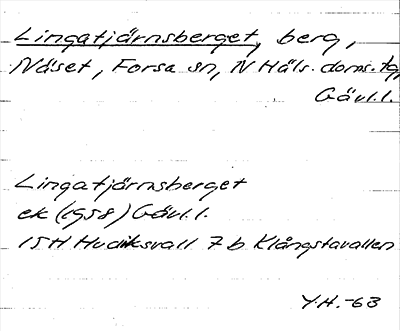 Lingatjärnsberget, berg,
Näset, Forsa sn, N Häls. doms. tg,
Gävl.l.
Lingatjärnsberget
ek (1958) Gävl.l.
15H Hudiksvall 7b Klångstavallen
Y.H.-63